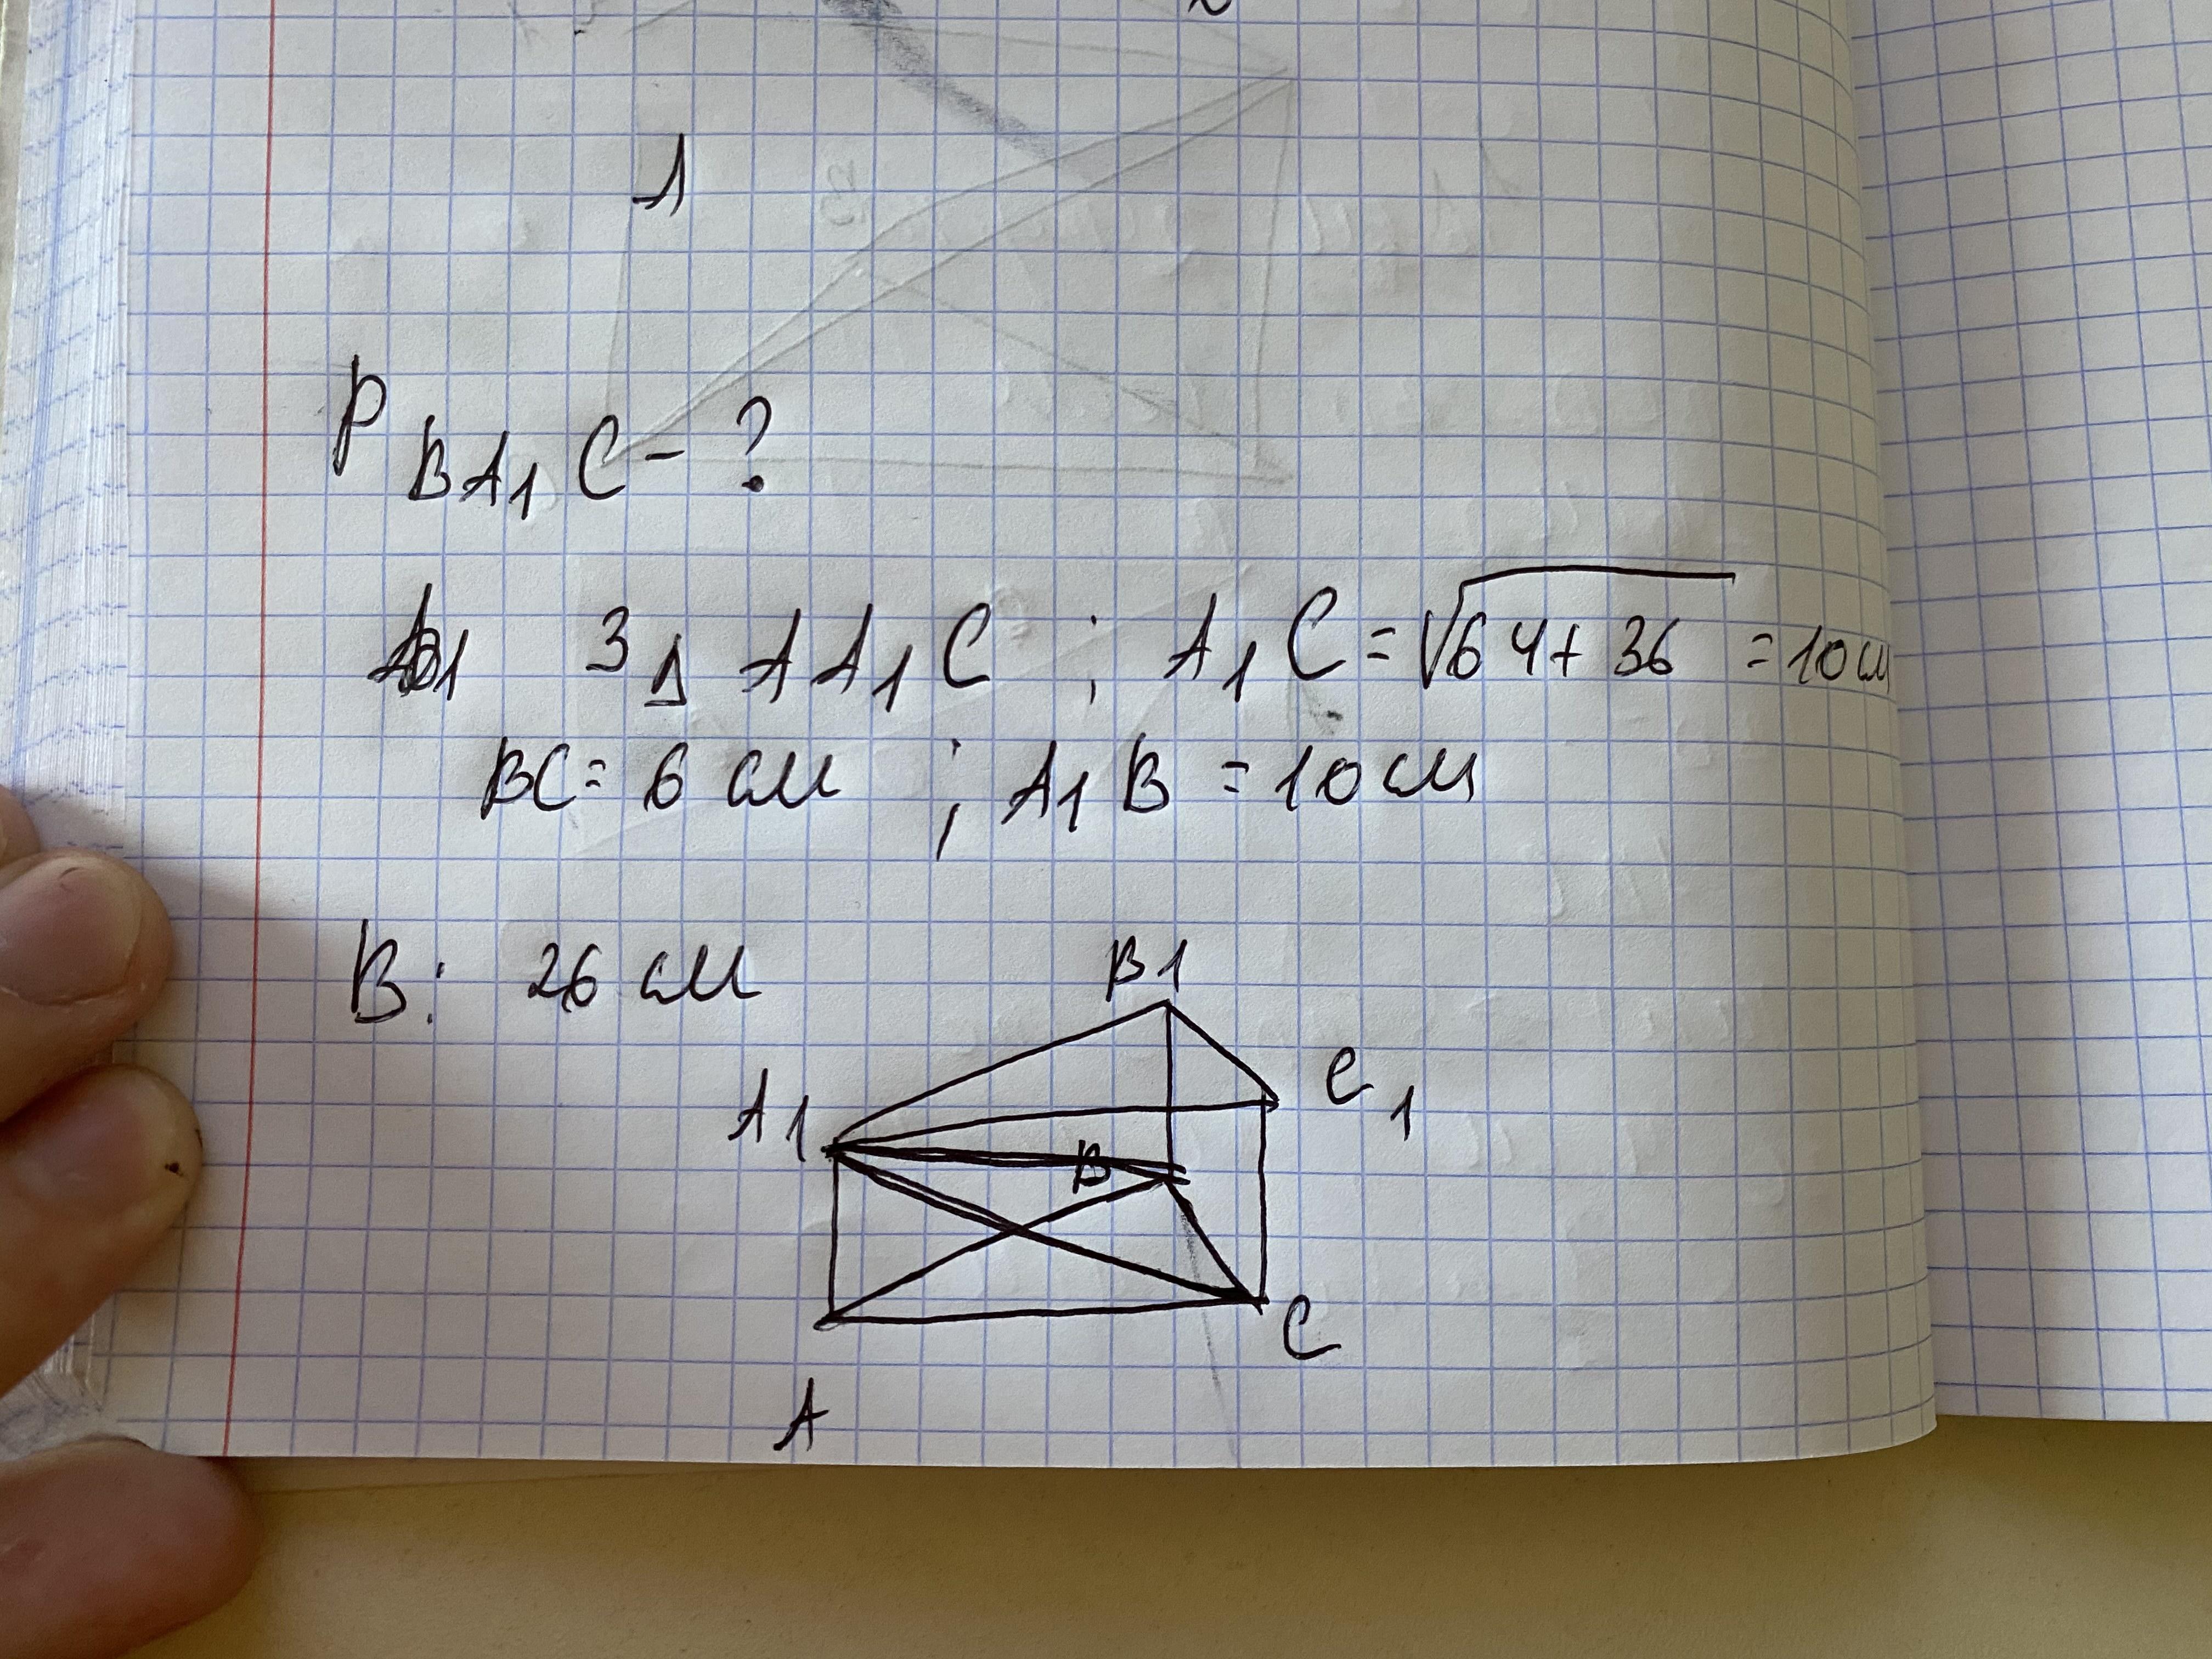 1
P BA1C - ?
З Δ AA1C ; A1C = √64+36 = 10 см
BC = 6 см ; A1B = 10 см
В: 26 см
B1
C1
A1
B
C
A